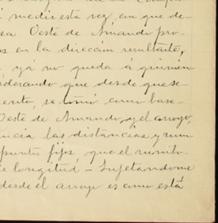 medir esta vez, en que de-
sea Oeste de Amando pro
en la dirección resultante,
ya no queda á quinien
siderando que desde que se
se tomó como base
Oeste de Amando, y el arroyo
ncia las distancias y rum
puntos fijos que el
longitud - Sujetandome
desde el arroyo es como está